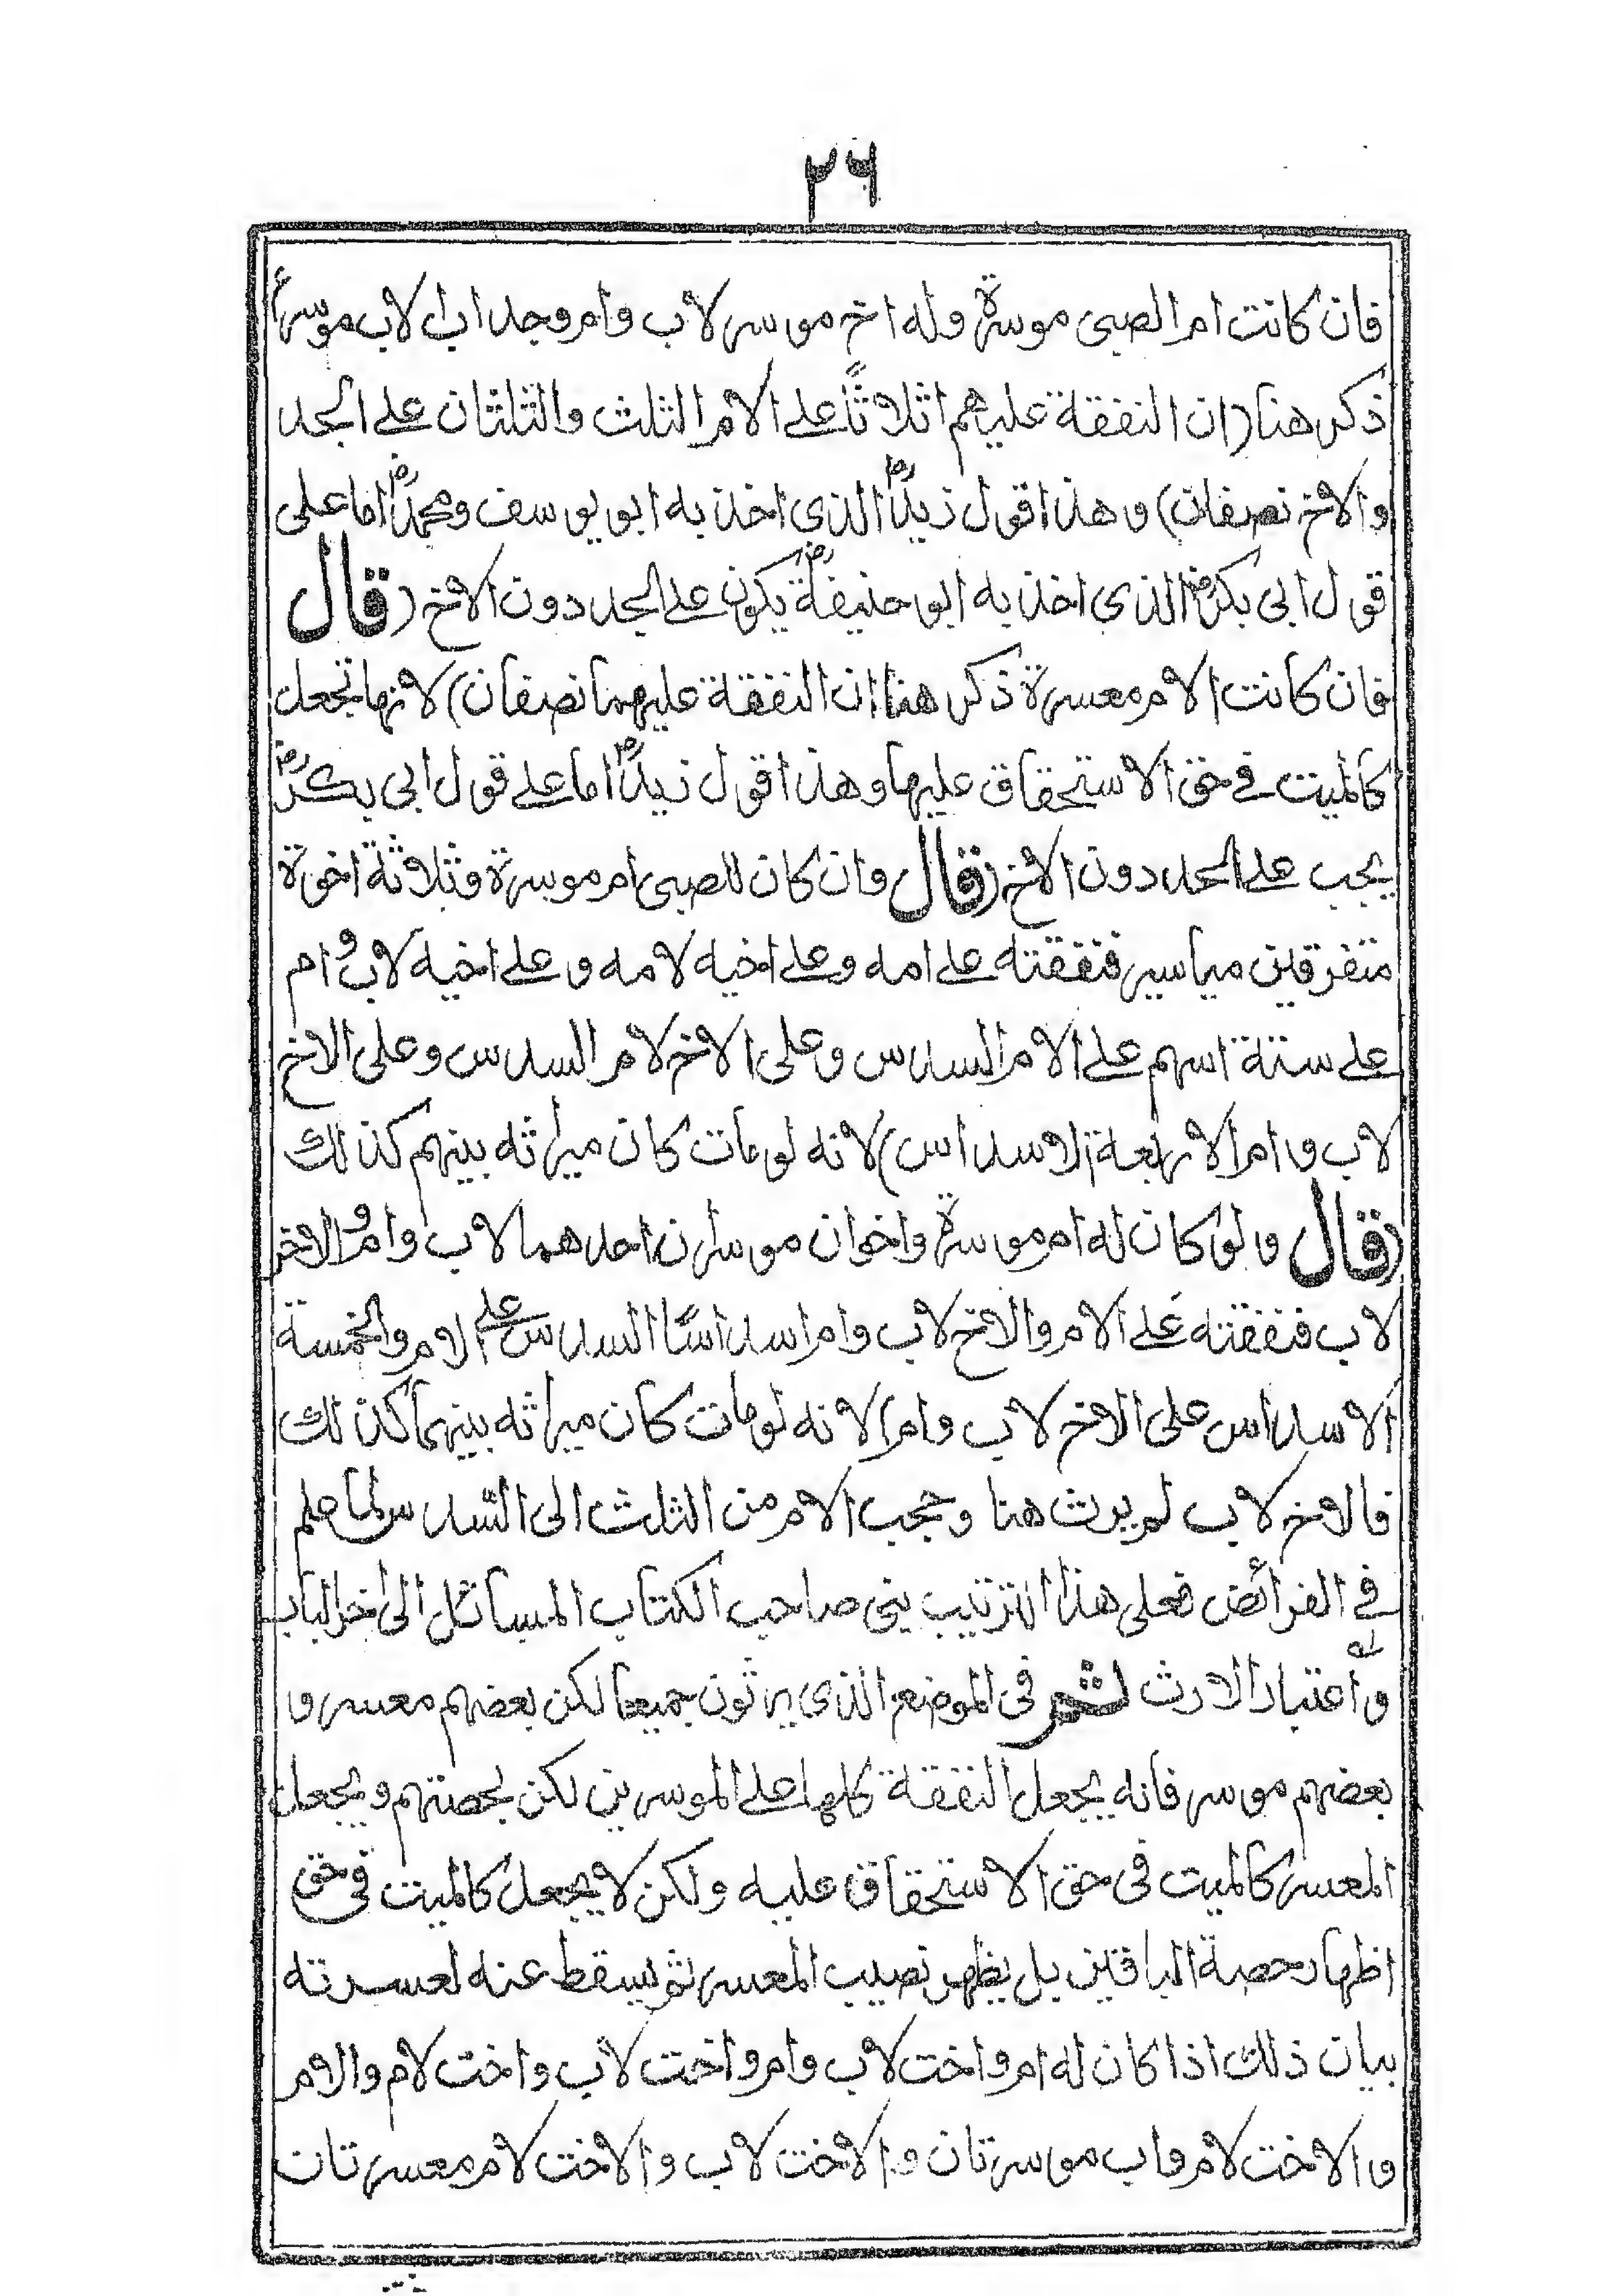 ٢٦
فان كانت ام الصبى موسرة وله اخ موسر لاب وام وجد اب الاب موسراً
ذكر هنا (ان النفقة عليهم اثلاثاً على الام الثلث والثلثان على الجد
والاخ نصفان) وهذا قول زيدؓ الذى اخذ به ابو يوسف ومحمدؒ اما على
قول ابى بكرؓ الذى اخذ به ابو حنيفةؒ يكون على الجد دون الاخ (قال
فان كانت الام معسرة ذكر هنا ان النفقة عليهما نصفان) لانها تجعل
كالميت فى حق الاستحقاق عليها وهذا قول زيدؓ اما على قول ابى بكرؓ
يجب على الجد دون الاخ (قال وان كان للصبى ام موسرة وثلاثة اخوة
متفرقين مياسير فنفقته على امه وعلى اخيه لامه وعلى اخيه لاب وام
على ستة اسهم على الام السدس وعلى الاخ لام السدس وعلى الاخ
لاب وام الاربعة الاسداس) لانه لو مات كان ميراثه بينهم كذلك
(قال ولو كان له ام موسرة واخوان موسران احدهما لاب وام والاخر
لاب فنفقته على الام والاخ لاب وام اسداسًا السدس على الام والخمسة
الاسداس على الاخ لاب وام) لانه لو مات كان ميراثه بينهما كذلك
فالاخ لاب لم يرث هنا وحجب الام من الثلث الى السدس لما علم
فى الفرائض فعلى هذا الترتيب بنى صاحب الكتاب المسائل الى اخر الباب
واعتبار الارث ثم فى الموضع الذى يرثون جميعا لكن بعضهم معسر و
بعضهم موسر فانه يجعل النفقة كلها على الموسرين لكن بحصتهم ويجعل
المعسر كالميت فى حق الاستحقاق عليه ولكن لا يجعل كالميت فى حق
اظهار حصة الباقين بل يظهر نصيب المعسر ثم يسقط عنه لعسرته
بيان ذلك اذا كان له ام واخت لاب وام واخت لاب واخت لام والام
والاخت لام واب موسرتان والاخت لاب والاخت لام معسرتان